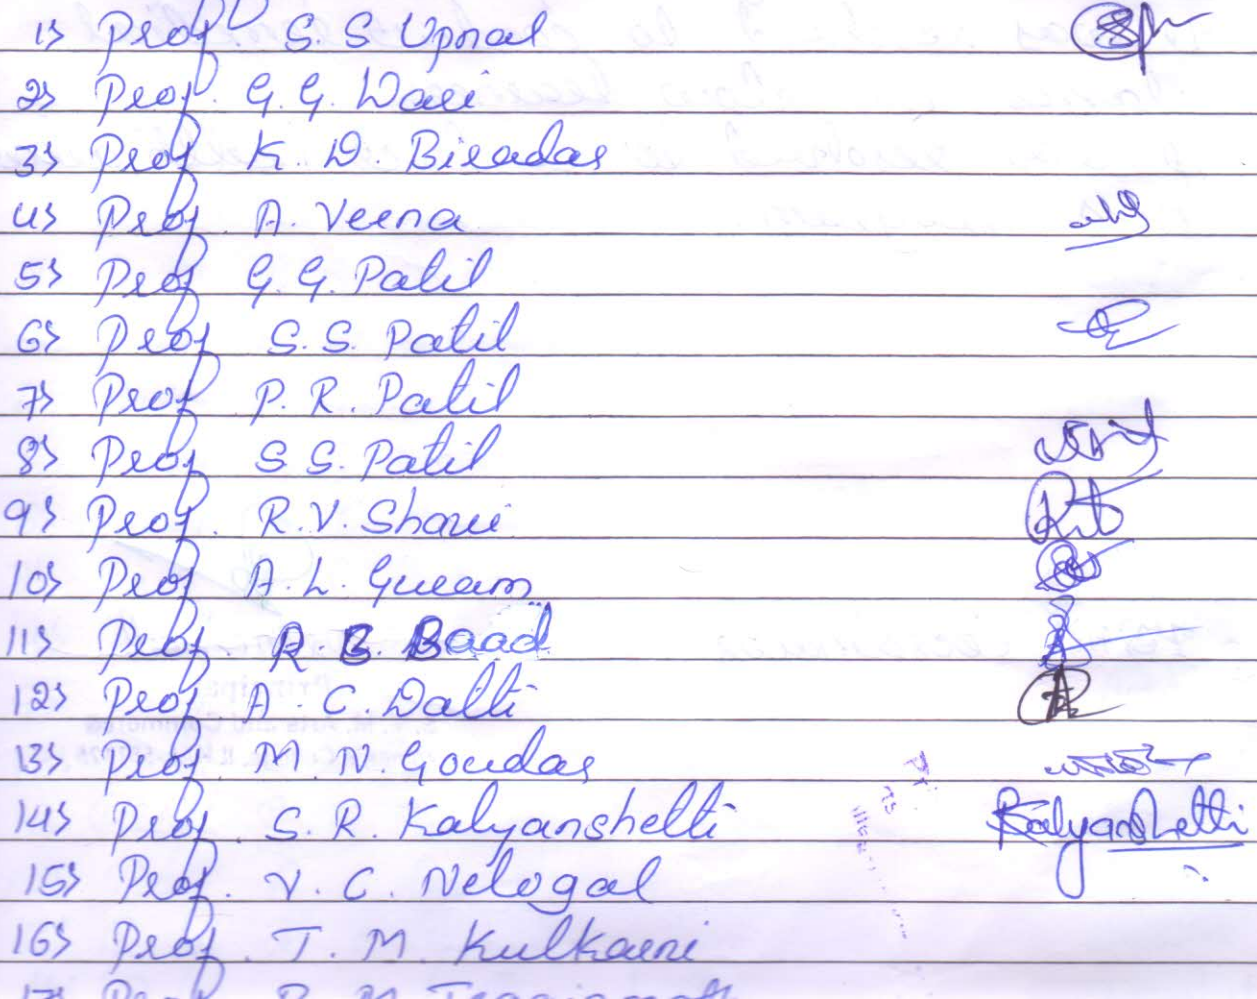 1) Prof. S. S Upnal
2) Prof. G. G. Wari
3) Prof K. D. Biradar
4) Prof. A. Veena
5) Prof G. G. Patil
6) Prof S. S. Patil
7) Prof P. R. Patil
8) Prof S S. Patil
9) Prof. R. V. Shavi
10) Prof A. L. Guram
11) Prof R B Baad
12) Prof A. C. Dalli
13) Prof. M. N. Goudar
14) Prof. S. R. Kalyanshetti Kalyanshetti
15) Prof. V. C. Nelogal
16) Prof. T. M Kulkarni
17) Prof